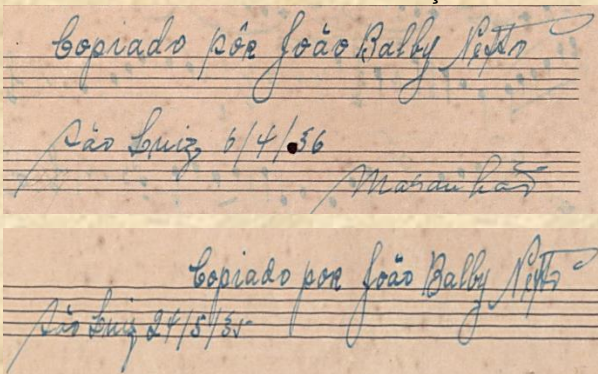 Copiado pôr João Balby Netto
São Luiz 6/4/36
Maranhão
Copiado por João Balby Netto
São Luiz 24/5/35